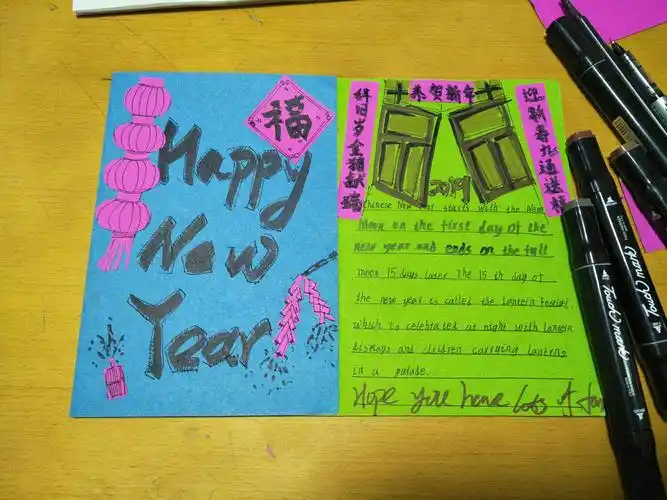 福
Happy
New
Year
恭贺新年
辞旧岁金猪献瑞
迎新春九通送福
2019
Chinese New Year starts with the New
Moon on the first day of the
new year and ends on the full
moon 15 days later The 15 th day of
the new year is called the Lantern Festival,
which is celebrated at night with lantern
displays and children carrying lanterns
in a parade.
Hope you have lots of fun
Touch mark
Touch mark